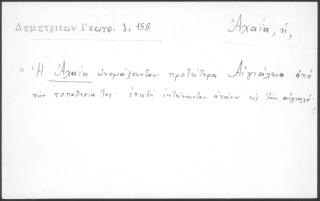 Δημητριέων Γεωγρ. 1, 158
Ἀχαΐα, ἡ,
"Ἡ Ἀχαΐα ὠνομάζουνταν προτύτερα Αἰγιάλεια ἀπὸ
τὴν τοποθεσία της· ἐπειδὴ ἐκτείνουνταν ἀπάνω εἰς τὸν αἰγιαλό